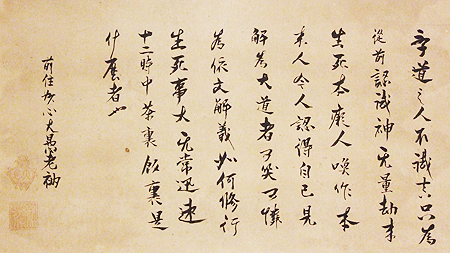 学道之人不識真只為
從前認識神无量劫来
生死本癡人喚作本
来人今人認得自己見
解為大道者可笑可憐
為依文解義如何修行
生死事大无常迅速
十二時中茶裏飯裏是
什麼者也
前住妙心大愚老衲